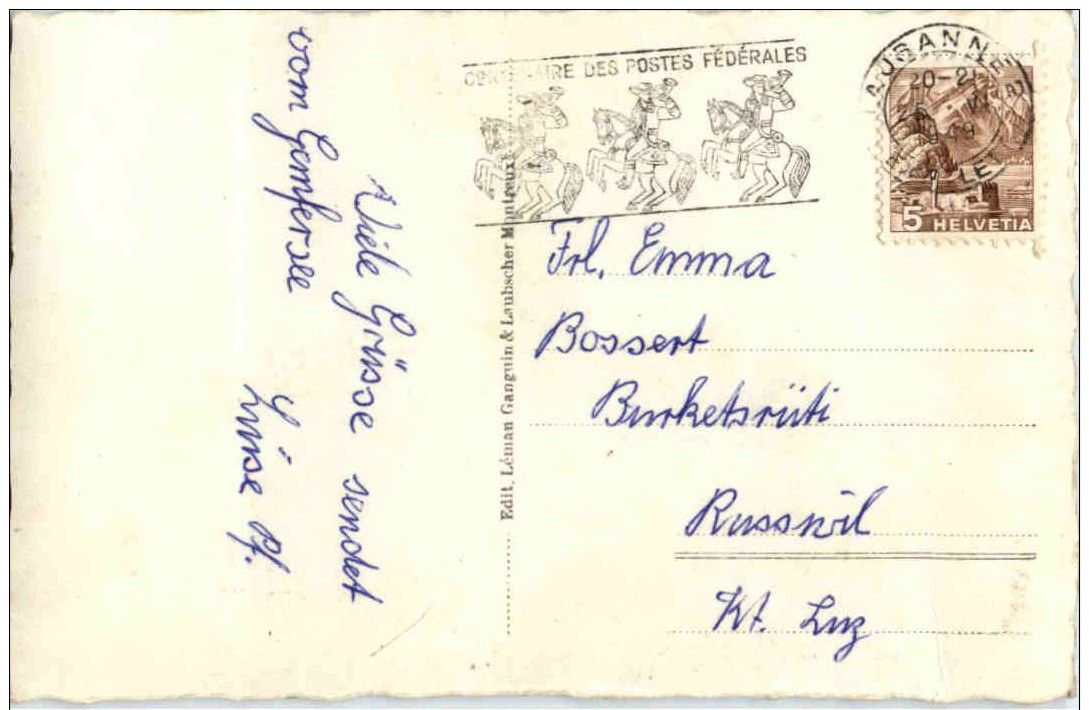 Viele Grüsse sendet
vom Gemfersee
Luise Pf.
Edit. Léman Ganguin & Laubscher Montreux
CENTENAIRE DES POSTES FÉDÉRALES
LAUSANNE
20-21
5 HELVETIA
Frl. Emma
Bossert
Burketsrüti
Russwil
Kt. Luz